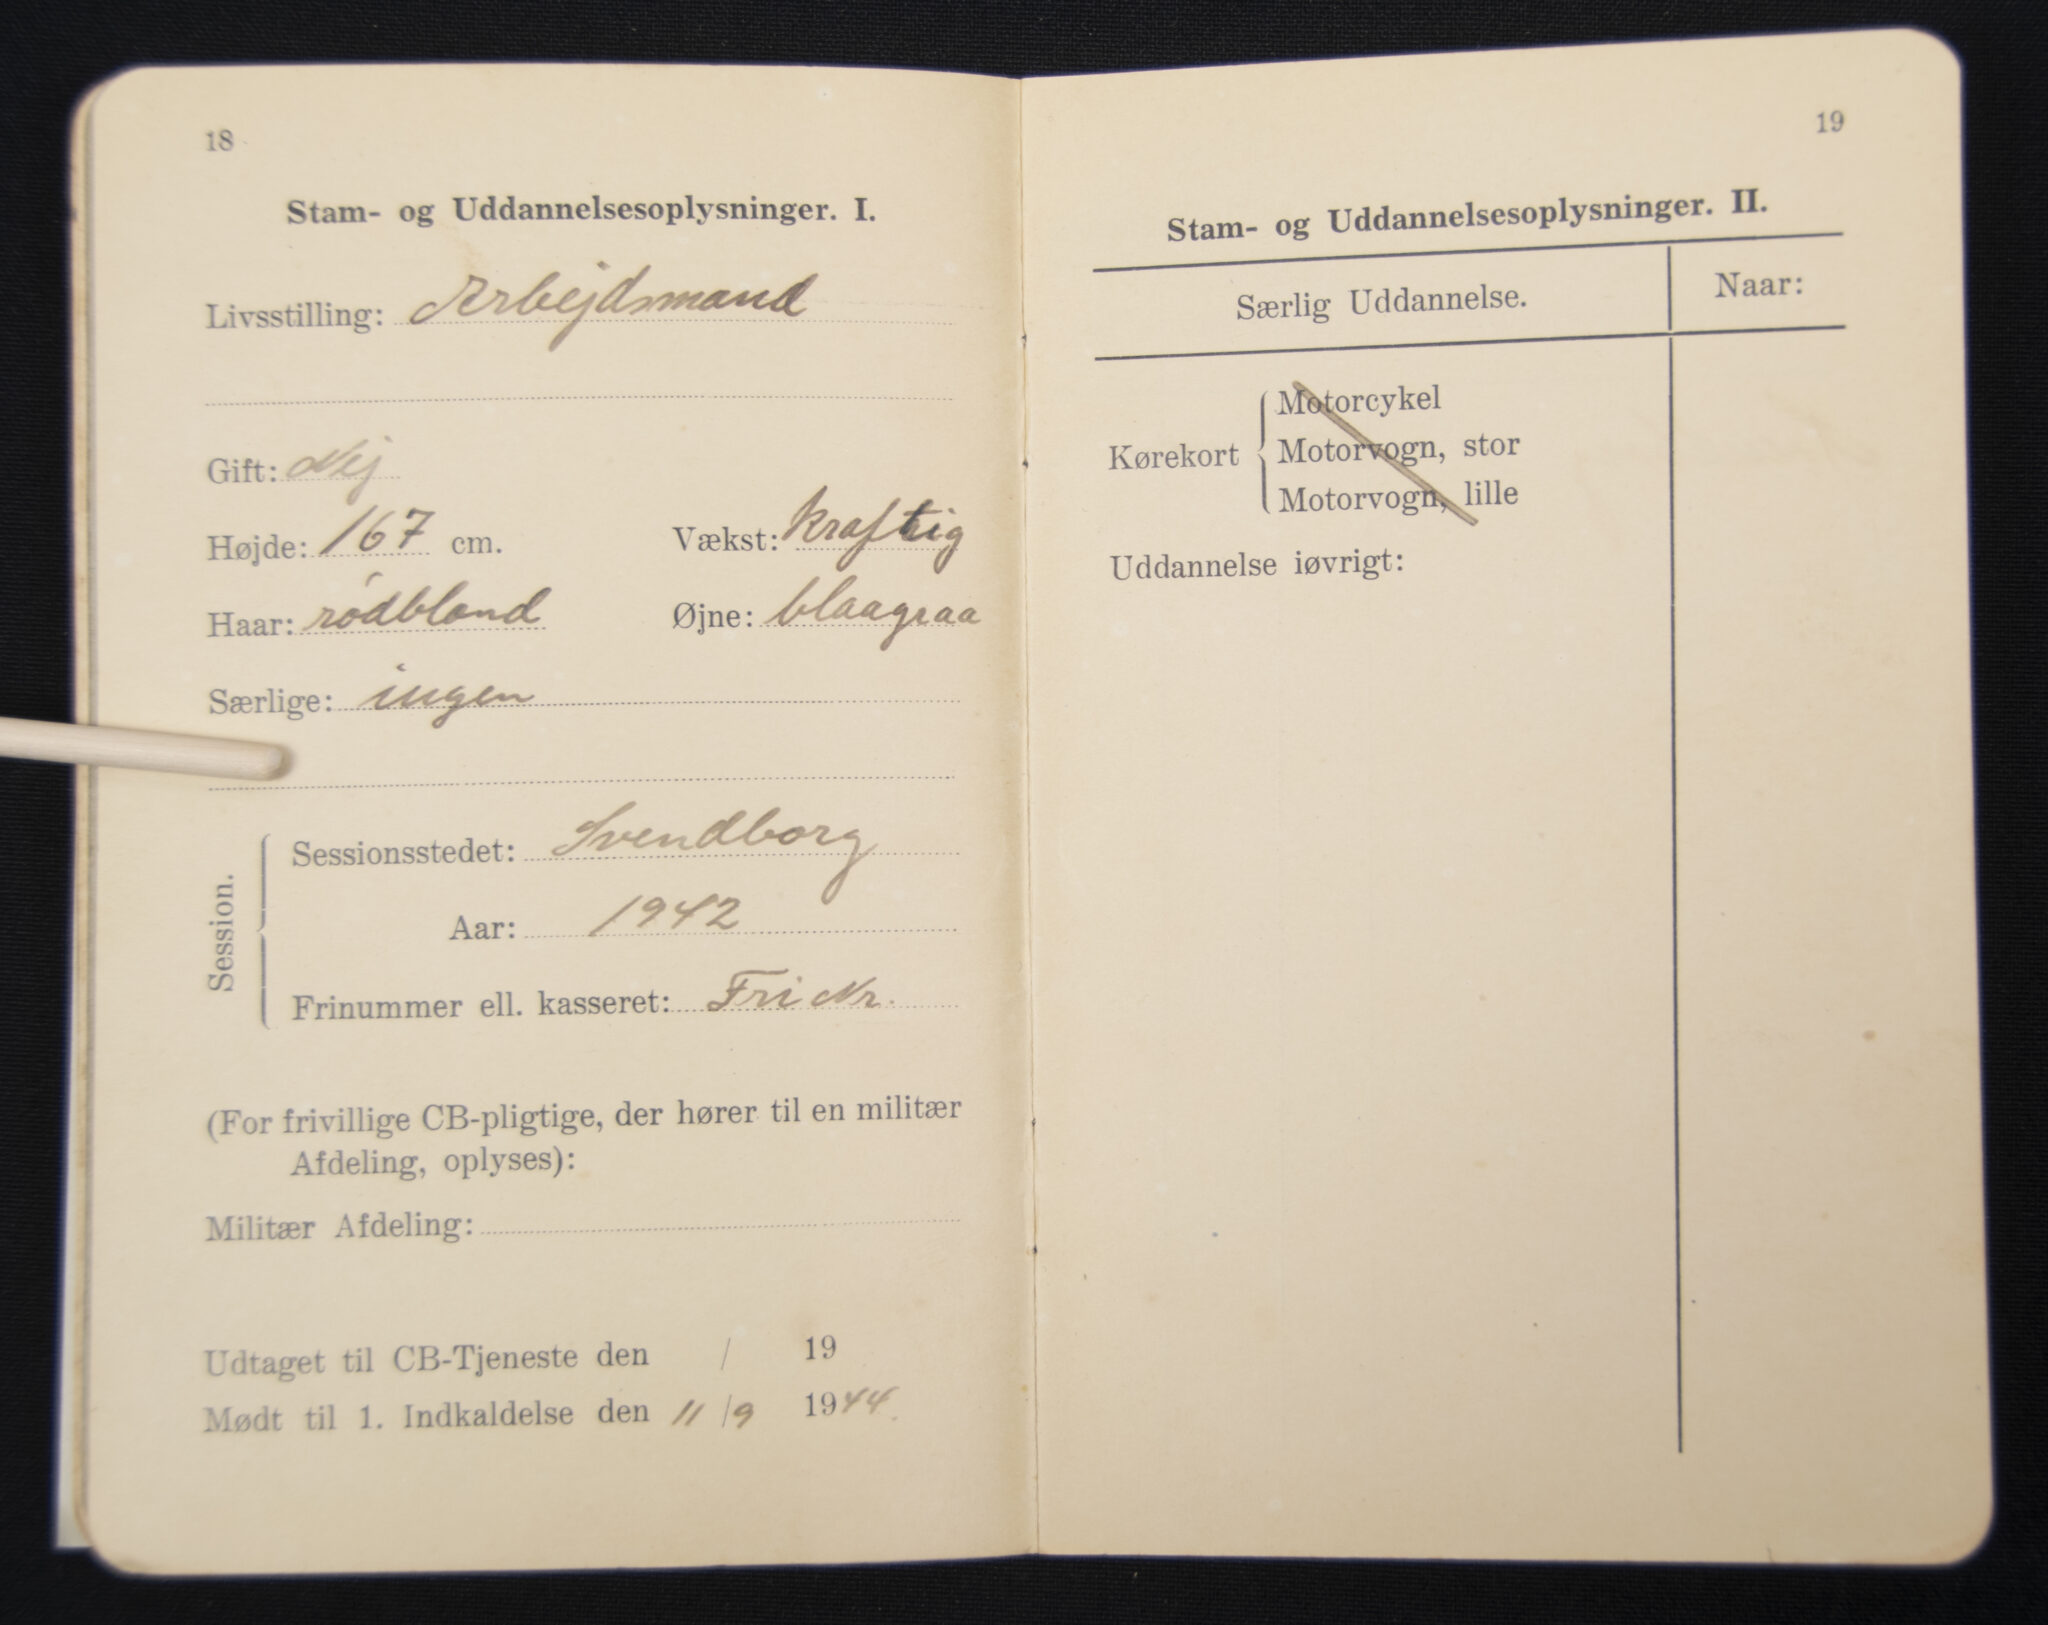 18
Stam- og Uddannelsesoplysninger. I.
Livsstilling: Arbejdsmand
Gift: Nej
Højde: 167 cm. Vækst: kraftig
Haar: rødblond Øjne: blaagraa
Særlige: ingen
Session.
Sessionsstedet: Svendborg
Aar: 1942
Frinummer ell. kasseret: Fri Nr.
(For frivillige CB-pligtige, der hører til en militær
Afdeling, oplyses):
Militær Afdeling:
Udtaget til CB-Tjeneste den / 19
Mødt til 1. Indkaldelse den 11/9 1944.
19
Stam- og Uddannelsesoplysninger. II.
Særlig Uddannelse. Naar:
Motorcykel
Kørekort Motorvogn, stor
Motorvogn, lille
Uddannelse iøvrigt: